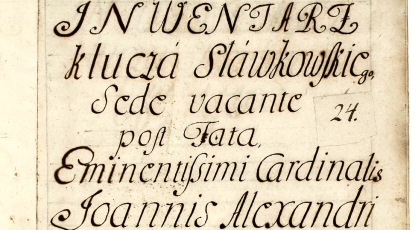 INWENTARZ
kluczá Sláwkowſkieº
Sede vacante
24.
poſt Fata,
Eminentiſsimi Cardinalis
Joannis Alexandri